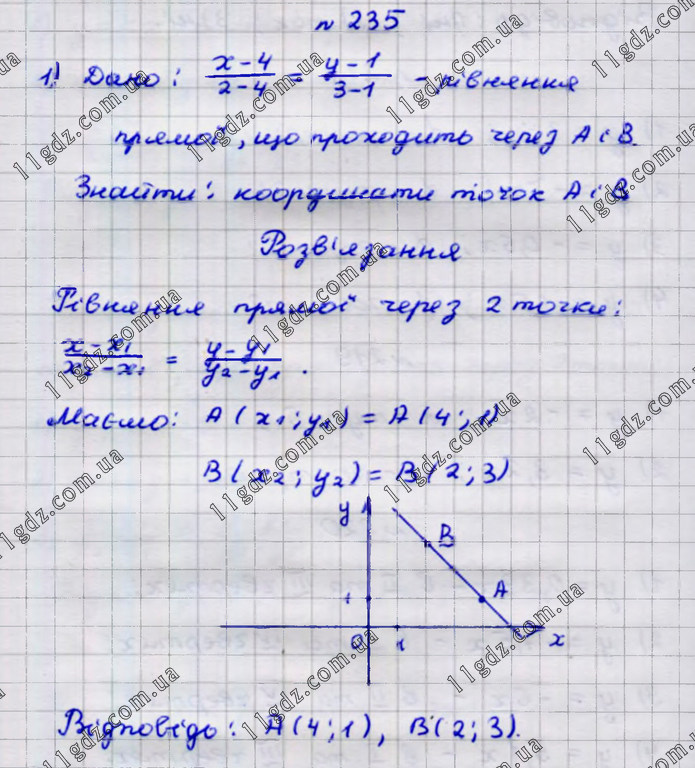 № 235
1) Дано: \frac{x-4}{2-4} = \frac{y-1}{3-1} - рівняння
прямої, що проходить через A і B.
Знайти: координати точок A і B
Розв'язання
Рівняння прямої через 2 точки:
\frac{x-x₁}{x₂-x₁} = \frac{y-y₁}{y₂-y₁}.
Маємо: A(x₁; y₁) = A(4; 1)
B(x₂; y₂) = B(2; 3)
y
B
1 A
0 1 x
Відповідь: A(4; 1), B(2; 3).
11gdz.com.ua